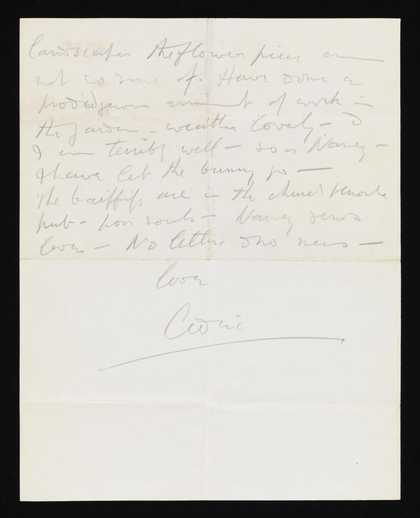 landscapes the flower pieces are
not so sure of. Have done a
prodigious amount of work in
the garden - weather lovely - &
I am terribly well - so is Nancy -
I have let the bunny go -
The bailiffs are in the
pub - poor souls - Nancy sends
love - No letters & no news -
love
Cedric